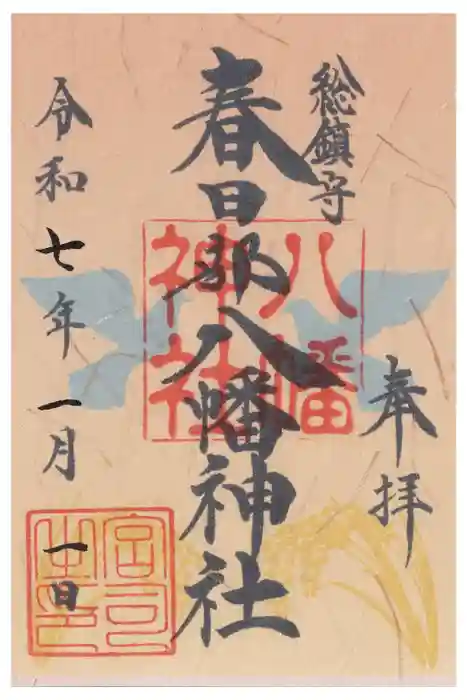 総鎮守
奉拝
春日部八幡神社
八幡神社
令和七年一月一日
宮司之印